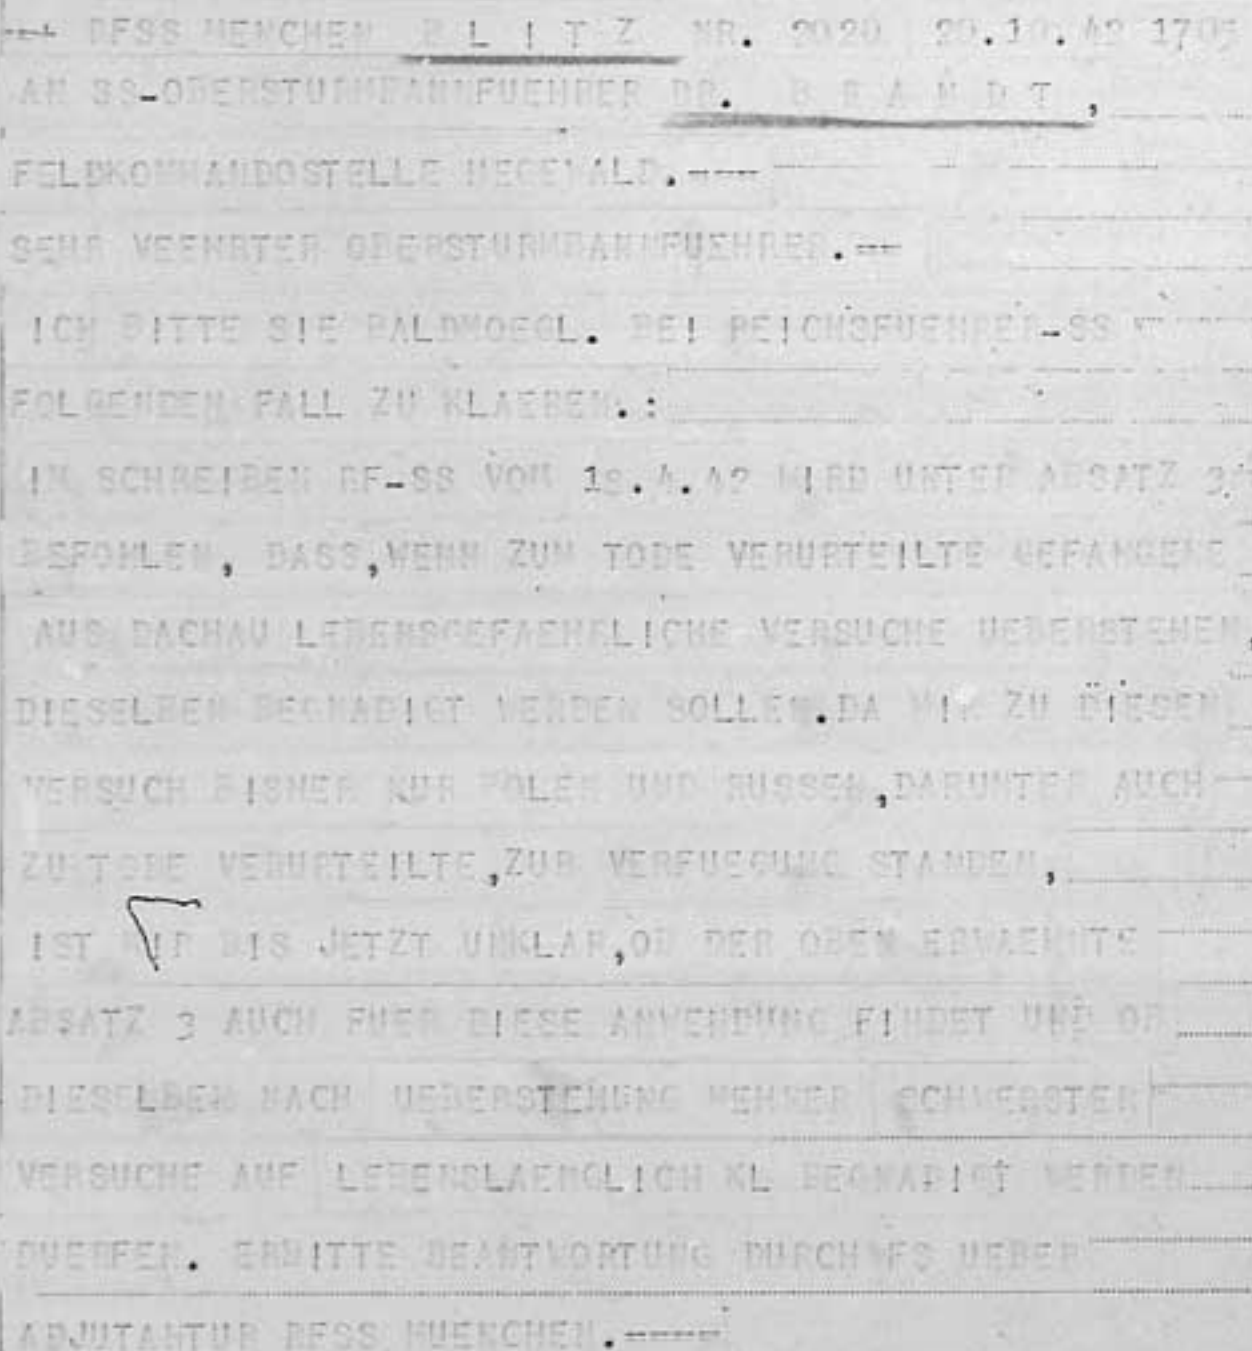 --+ RFSS MENCHEN B L I T Z NR. 2020 20.10.42 1705
AN SS-OBERSTURMBANNFUEHRER DR. B R A N D T ,
FELDKOMMANDOSTELLE HEGEWALD.---
SEHR VEEHRTER OBERSTURMBANNFUEHRER.--
ICH BITTE SIE BALDMOEGL. BEI REICHSFUEHRER-SS
FOLGENDEN FALL ZU KLAEREN.:
IM SCHREIBEN RF-SS VOM 18.4.42 WIRD UNTER ABSATZ 3
BEFOHLEN, DASS,WENN ZUM TODE VERURTEILTE GEFANGENE
AUS DACHAU LEBENSGEFAEHRLICHE VERSUCHE UEBERSTEHEN,
DIESELBEN BEGNADIGT WERDEN SOLLEN.DA MIR ZU DIESEN
VERSUCH BISHER NUR POLEN UND RUSSEN,DARUNTER AUCH
ZU TODE VERURTEILTE,ZUR VERFUEGUNG STANDEN,
IST MIR BIS JETZT UNKLAR,OB DER OBEN ERWAEHNTE
ABSATZ 3 AUCH FUER DIESE ANWENDUNG FINDET UND OB
DIESELBEN NACH UEBERSTEHUNG MEHRER SCHWERSTER
VERSUCHE AUF LEBENSLAENGLICH KL BEGNADIGT WERDEN
DUERFEN. ERBITTE BEANTWORTUNG DURCH FS UEBER
ADJUTANTUR RFSS MUENCHEN.----